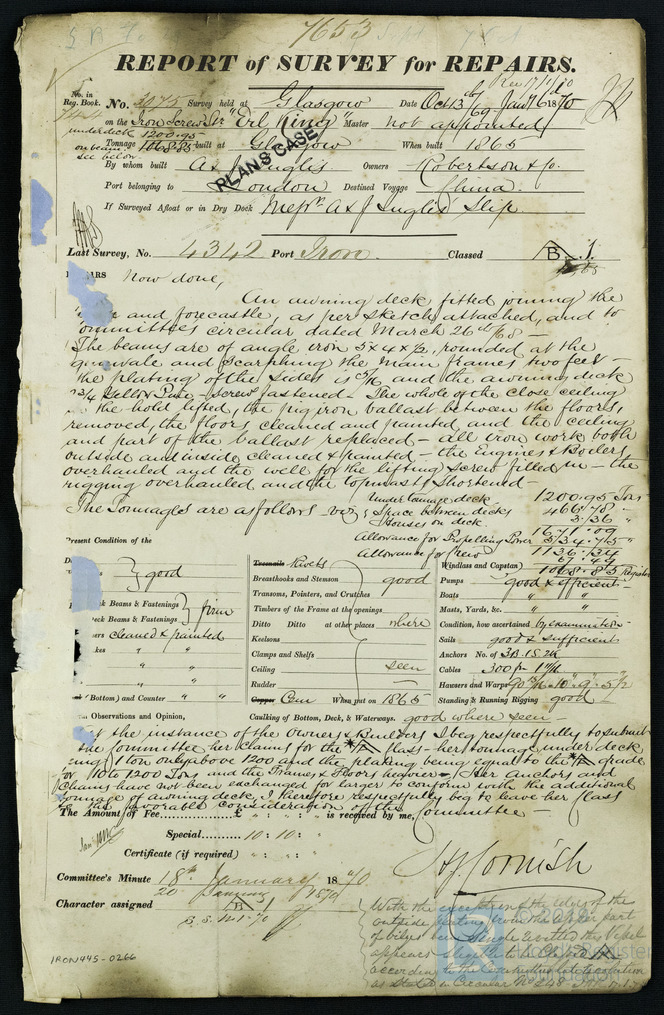 7653
REPORT of SURVEY for REPAIRS.
Rec 17/1/70
No. in Reg. Book. No. 3075 Survey held at Glasgow Date Oct 13 69 Jany 6 1870
on the Iron Screw Str "Erl King" Master not appointed
under deck 1200.95
Tonnage 1068.85 built at Glasgow When built 1865
on beam
see below
By whom built A & J Inglis Owners Robertson & Co.
PLANS CASE
Port belonging to London Destined Voyage China.
If Surveyed Afloat or in Dry Dock Messrs A & J Inglis Slip.
Last Survey, No. 4342 Port Iron. Classed B 1.
Now done,
An awning deck fitted joining the
and forecastle, as per sketch attached, and to
Committees circular dated March 26th /68 —
The beams are of angle iron 5 x 4 x 1/2, rounded at the
gunwale and scarphing the main frames two feet —
the plating of the sides is 5/16 and the awning deck
3/4 Yellow Pine — screw fastened. The whole of the close ceiling
in the hold lifted, the pig iron ballast between the floors,
removed, the floors cleaned and painted, and the ceiling
and part of the ballast replaced — all iron work both
outside and inside cleaned & painted — the Engines & Boilers
overhauled and the well for the lifting screw filled in — the
rigging overhauled and the topmasts shortened —
The Tonnages are as follows viz
Under tonnage deck 1200.95 Tons
Space between decks 466.78 "
Houses on deck 3.36 "
1671.09
Allowance for Propelling Power 534.75 "
1136.34
Allowance for Crew 67.49
1068.85 Register
Present Condition of the
good
Deck Beams & Fastenings
Deck Beams & Fastenings firm
cleaned & painted
" "
" "
" "
(Bottom) and Counter " "
Treenails Rivets
Breasthooks and Stemson good
Transoms, Pointers, and Crutches
Timbers of the Frame at the openings
Ditto Ditto at other places where
Keelsons
Clamps and Shelfs
Ceiling seen
Rudder —
Copper Cem When put on 1865
Caulking of Bottom, Deck, & Waterways. good where seen —
Windlass and Capstan
Pumps good & efficient
Boats " "
Masts, Yards, &c. " "
Condition, how ascertained by examination
Sails good & sufficient
Anchors No. of 3B. 1S. 2K
Cables 300 fm 1 11/16
Hawsers and Warps
Standing & Running Rigging good
Observations and Opinion,
At the instance of the Owners & Builders I beg respectfully to submit
the Committee her claims for the A class — her tonnage under deck
being 1 ton only above 1200 and the plating being equal to the A grade
for 1100 to 1200 Tons and the Frames & Floors heavier — Her Anchors and
Chains have not been exchanged for larger to conform with the additional
tonnage of awning deck. I therefore respectfully beg to leave her class
to the favorable consideration of the Committee —
The Amount of Fee............£ " : " : " is received by me,
Special.......10 : 10 :
Certificate (if required) : :
H J Cornish
Committee's Minute 18th January 1870
20 January 1870
Character assigned B 1
B.S. 12.1.70
With the exception of the edges of the
outside plating from the upper part
of bilges
appears eligible to be Classed A
according to the
as stated in Circular No 248
IRON445-0266